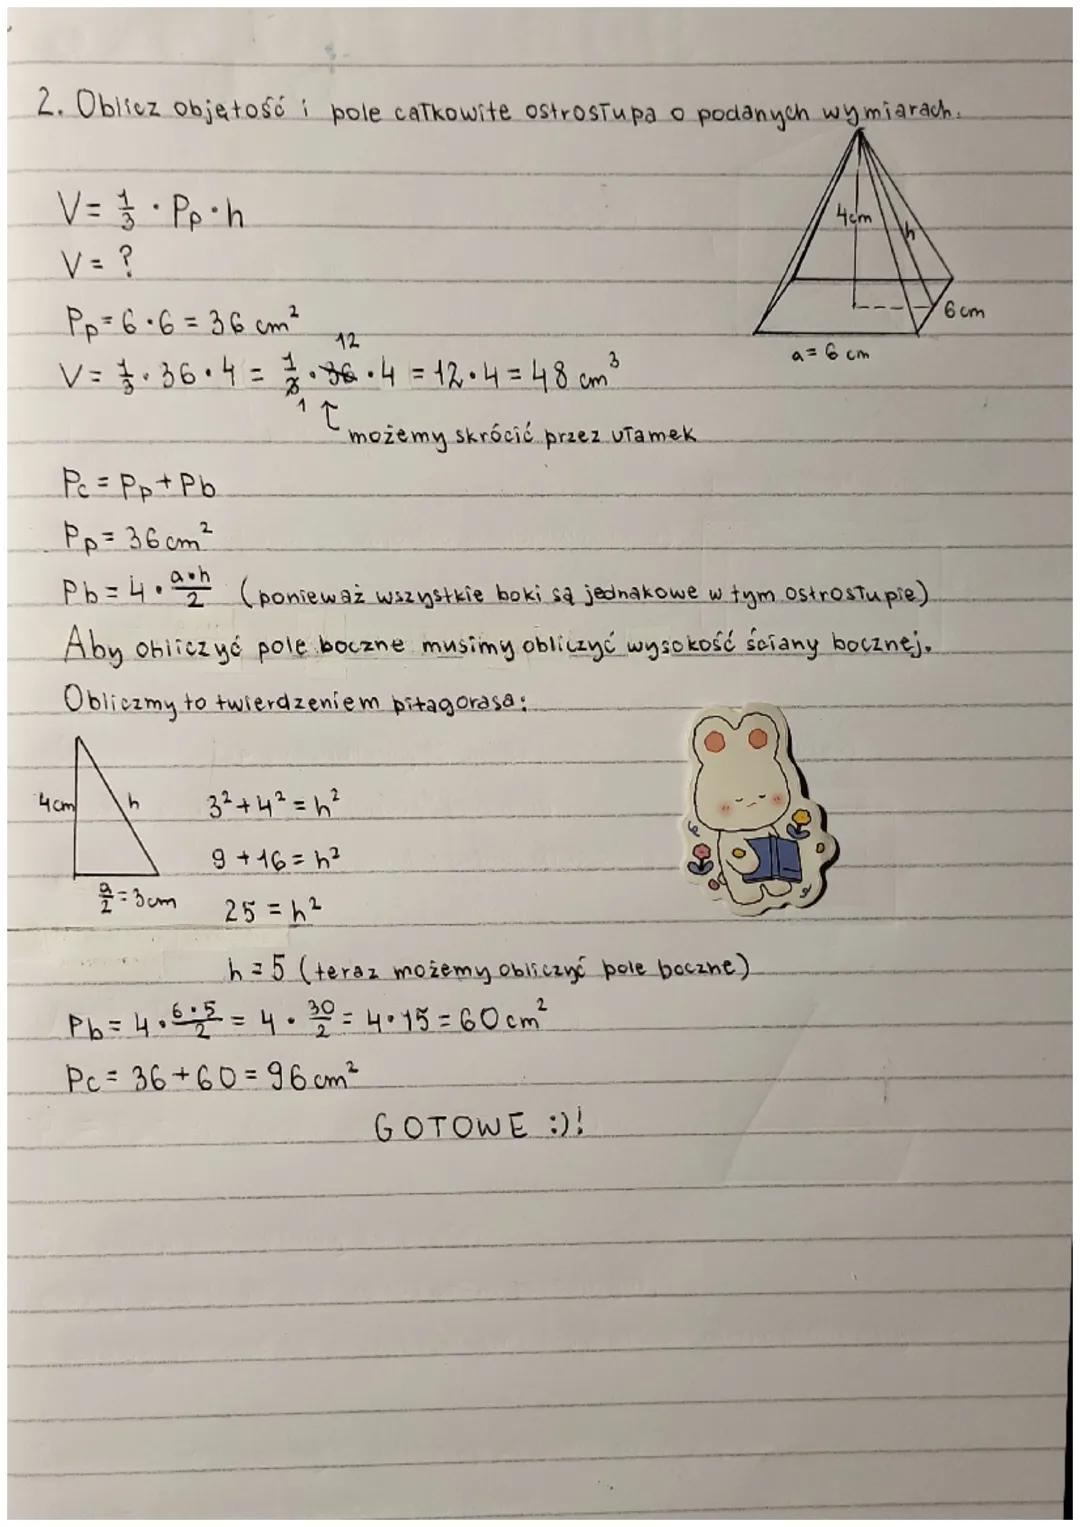 2. Oblicz objętość i pole całkowite ostrosłupa o podanych wymiarach.
4cm
h
6cm
a = 6 cm
V = 1/3 · Pp · h
V = ?
Pp = 6 · 6 = 36 cm²
12
V = 1/3 · 36 · 4 = 1/3 · 36 · 4 = 12 · 4 = 48 cm³
1
możemy skrócić przez ułamek
Pc = Pp + Pb
Pp = 36 cm²
Pb = 4 · a·h/2 (ponieważ wszystkie boki są jednakowe w tym ostrosłupie)
Aby obliczyć pole boczne musimy obliczyć wysokość ściany bocznej.
Obliczmy to twierdzeniem pitagorasa:
4cm
h
a/2 = 3cm
3² + 4² = h²
9 + 16 = h²
25 = h²
h = 5 (teraz możemy obliczyć pole boczne)
Pb = 4 · 6·5/2 = 4 · 30/2 = 4 · 15 = 60 cm²
Pc = 36 + 60 = 96 cm²
GOTOWE :)!